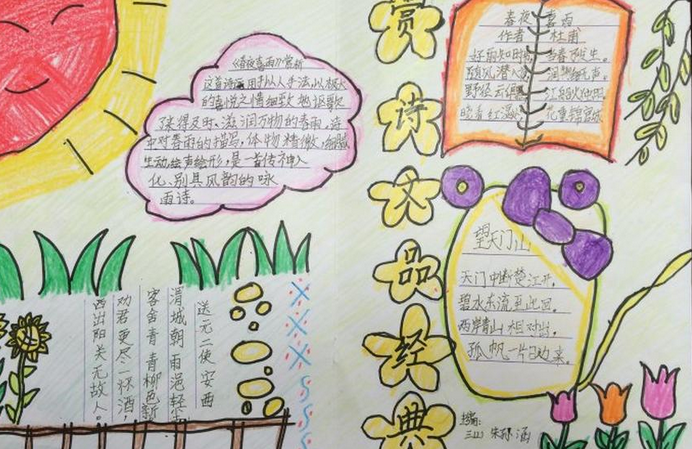 《春夜喜雨》赏析
这首诗运用拟人手法,以极大
的喜悦之情细致地讴歌
来得及时、滋润万物的春雨,诗
中对春雨的描写,体物精微,细腻
生动绘声绘形,是一首传神入
化、别具风韵的咏
雨诗。
赏
诗
文
品
经
典
春夜喜雨
作者 杜甫
好雨知时节 当春乃发生。
随风潜入夜 润物细无声。
野径云俱黑 江船火独明
晓看红湿处 花重锦官城
望天门山
天门中断楚江开,
碧水东流至此回。
两岸青山相对出,
孤帆一片日边来。
送元二使安西
渭城朝雨浥轻尘
客舍青青柳色新
劝君更尽一杯酒
西出阳关无故人
三(1) 朱
涵